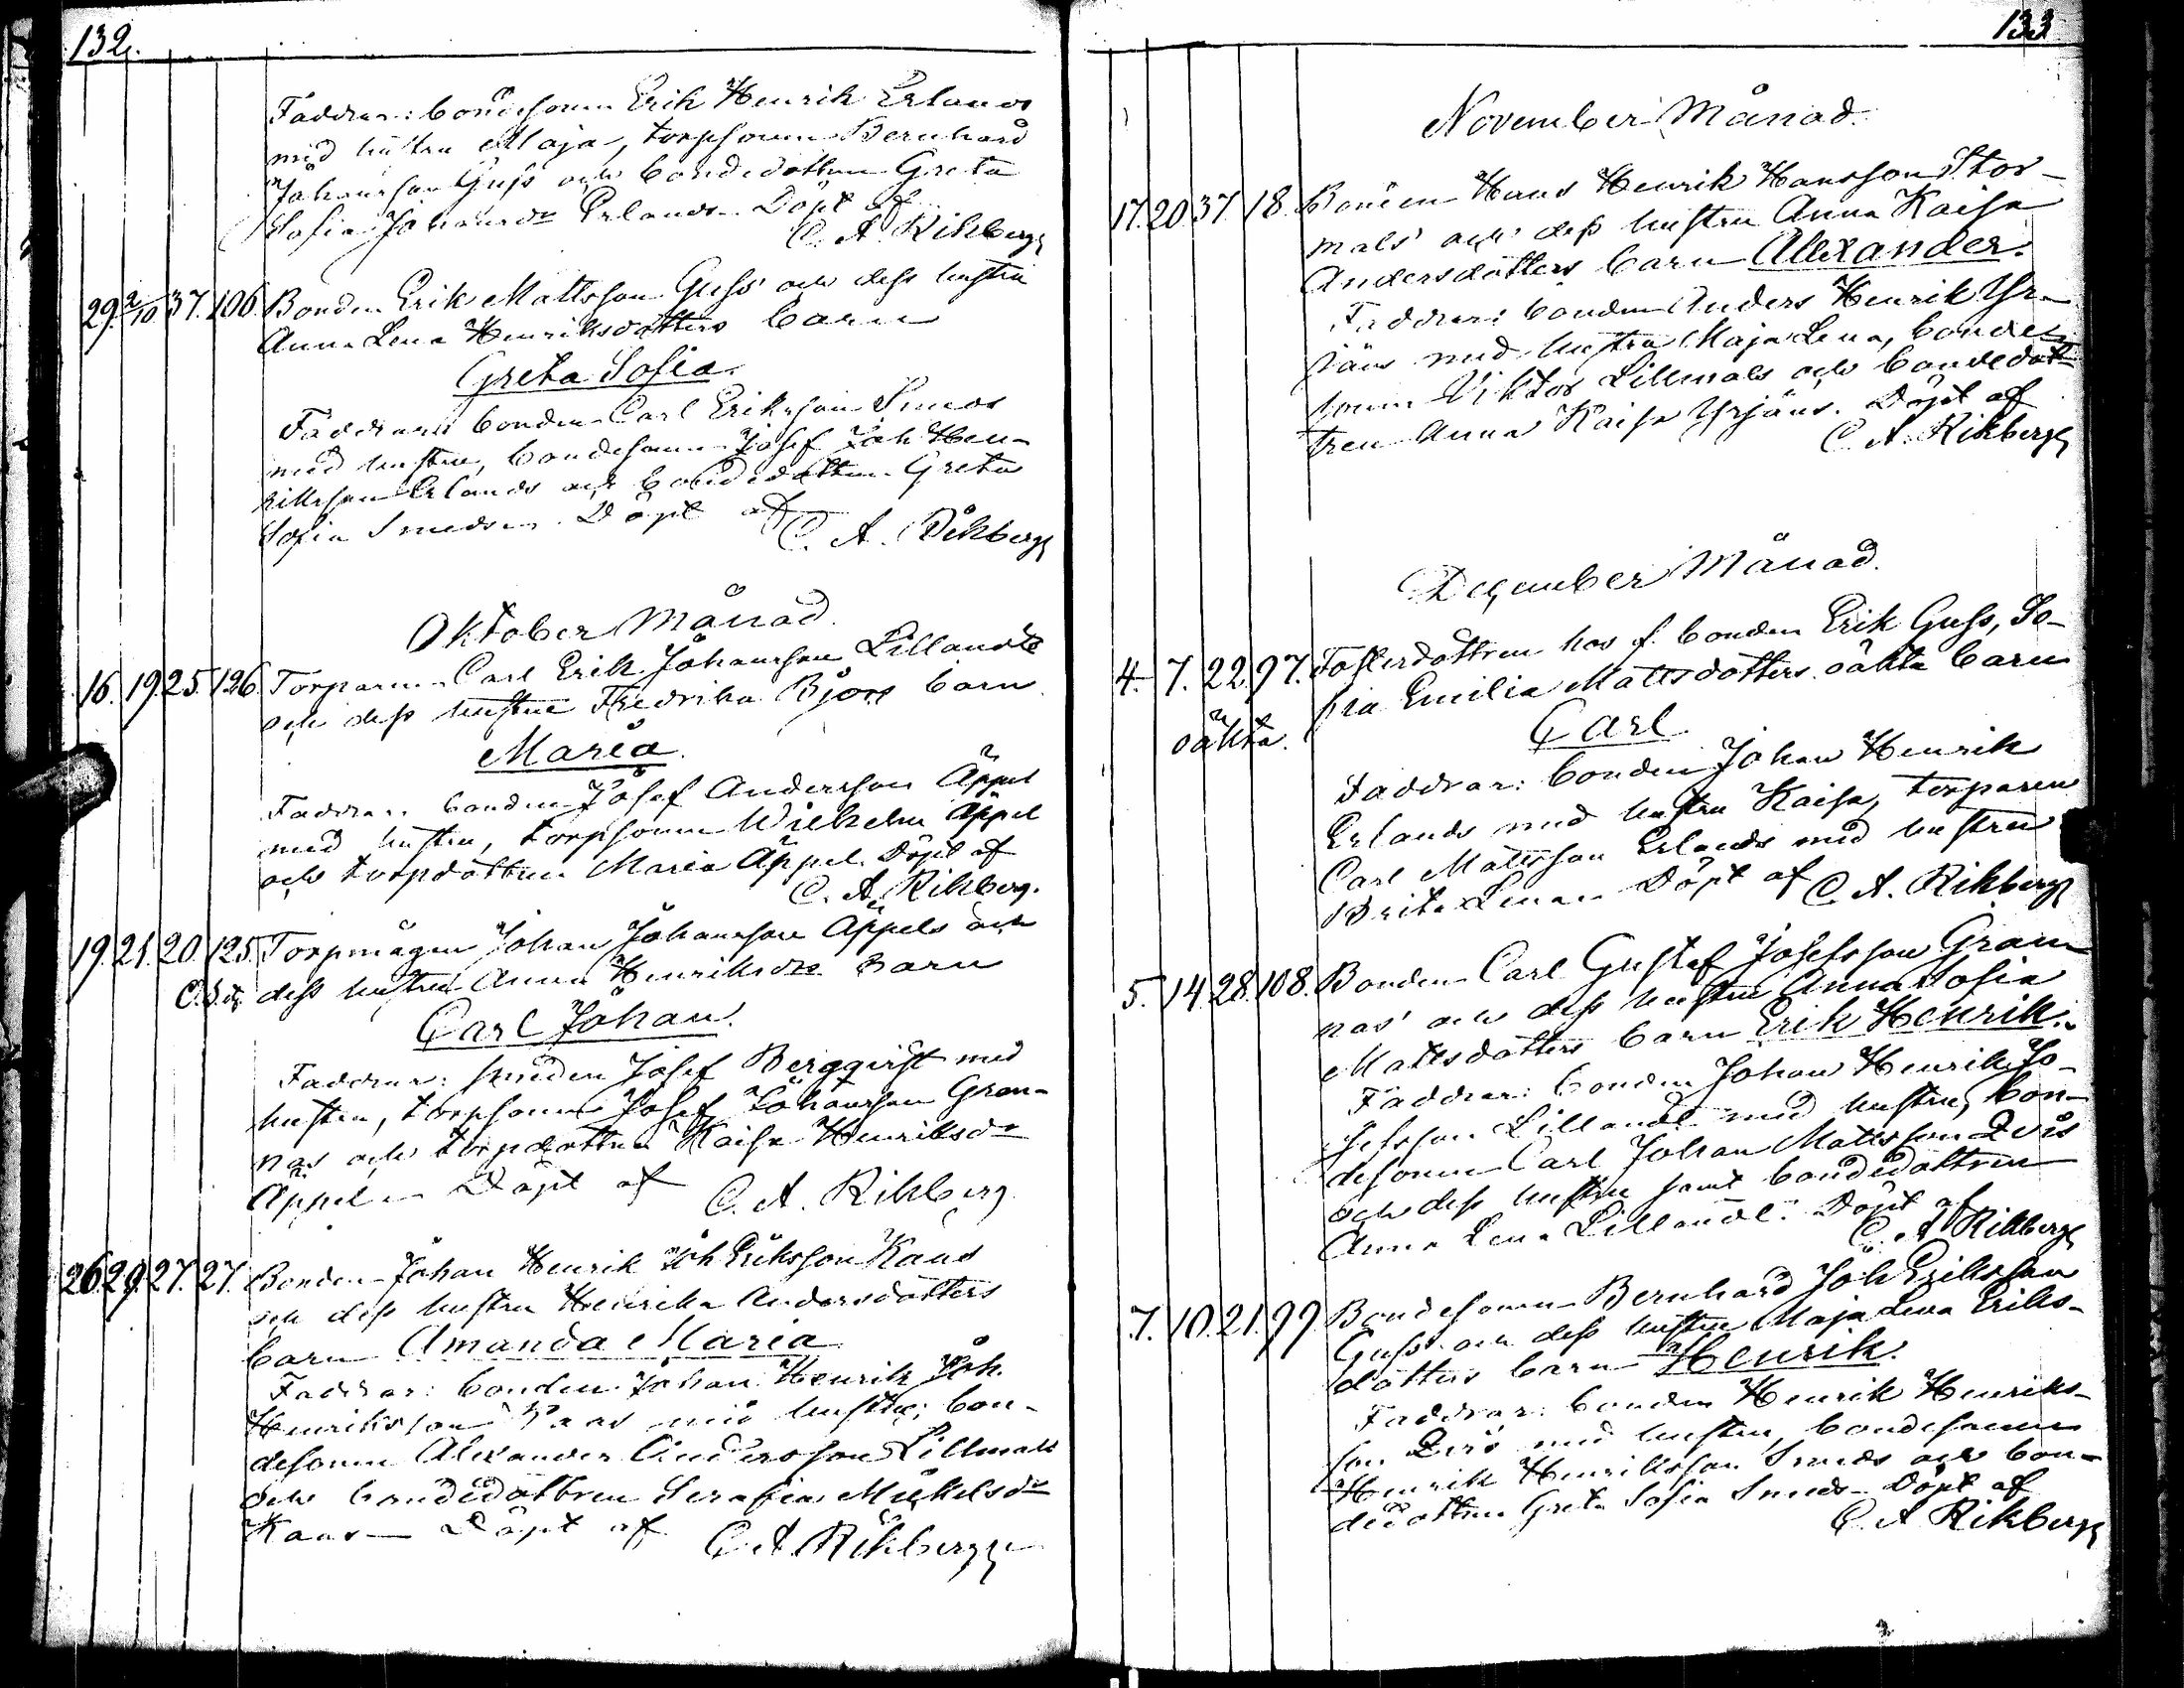 132.
Faddrar: bondesonen Erik Henrik Erlands
med hustru Maja, torpsonen Bernhard
Johansson Guss och bondedottren Greta
Sofia Johansdr Erlands. Döpt af
C. A. Rikberg
29. 2/10 37. 106. Bonden Erik Mattsson Guss' och dess hustru
Anna Lena Henriksdotters barn
Greta Sofia.
Faddrar: bonden Carl Eriksson Smeds
med hustru, bondesonen Josef Joh Hen-
riksson Erlands och bondedottren Greta
Sofia Smeds. Döpt af
C. A. Rikberg
Oktober Månad.
16. 19 25. 126. Torparen Carl Erik Johansson Lillandts
och dess hustru Fredrika Björs barn
Maria.
Faddrar: bonden Josef Andersson Äppel
med hustru, torpsonen Wilhelm Äppel
och torpdottren Maria Äppel. Döpt af
C. A. Rikberg.
19. 21. 20. 125. Torpmågen Johan Johansson Äppels och
dess hustru Anna Henriksdrs barn
Carl Johan.
Faddrar: smeden Josef Bergqvist med
hustru, torpsonen Josef Johansson Gran-
nas och torpdottren Kaisa Henriksdr
Äppel. Döpt af
C. A. Rikberg
26. 29. 27. 27. Bonden Johan Henrik Joh Eriksson Kaas
och dess hustru Henrika Andersdotters
barn Amanda Maria
Faddrar: bonden Johan Henrik Joh.
Henriksson Kaas med hustru; bon-
desonen Alexander Andersson Lillmals
och bondedottren Serafia Mickelsdr
Kaas— Döpt af
C. A. Rikberg
133
November Månad.
17. 20 37. 18. Bonden Hans Henrik Hansson Stor-
mals' och dess hustru Anna Kaisa
Andersdotters barn Alexander.
Faddrar: bonden Anders Henrik Yr-
jäns med hustru Maja Lena, bonde-
sonen Viktor Lillmals och bondedot-
tren Anna Kaisa Yrjäns. Döpt af
C. A. Rikberg
December Månad.
4. 7. 22. 97. Fosterdottren hos f. bonden Erik Guss, So-
fia Emilia Mattsdotters oäkta barn
oäkta.
Carl
Faddrar: bonden Johan Henrik
Erlands med hustru Kaisa, torparen
Carl Mattsson Erlands med hustru
Brita Lena. Döpt af C. A. Rikberg
5. 14. 28. 108. Bonden Carl Gustaf Josefsson Gran-
nas' och dess hustru Anna Sofia
Mattsdotters barn Erik Henrik.
Faddrar: bonden Johan Henrik Jo-
sefsson Lillandt med hustru, bon-
desonen Carl Johan Mattsson Qvis
och dess hustru samt bondedottren
Anna Lena Lillandt. Döpt af
C. A. Rikberg
7. 10. 21. 99 Bondesonen Bernhard Joh Eriksson
Guss och dess hustru Maja Lena Eriks-
dotters barn Henrik.
Faddrar: bonden Henrik Henriks-
son Qvis med hustru, bondesonen
Henrik Henriksson Smeds och bon-
dedottren Greta Sofia Smeds. Döpt af
C. A. Rikberg